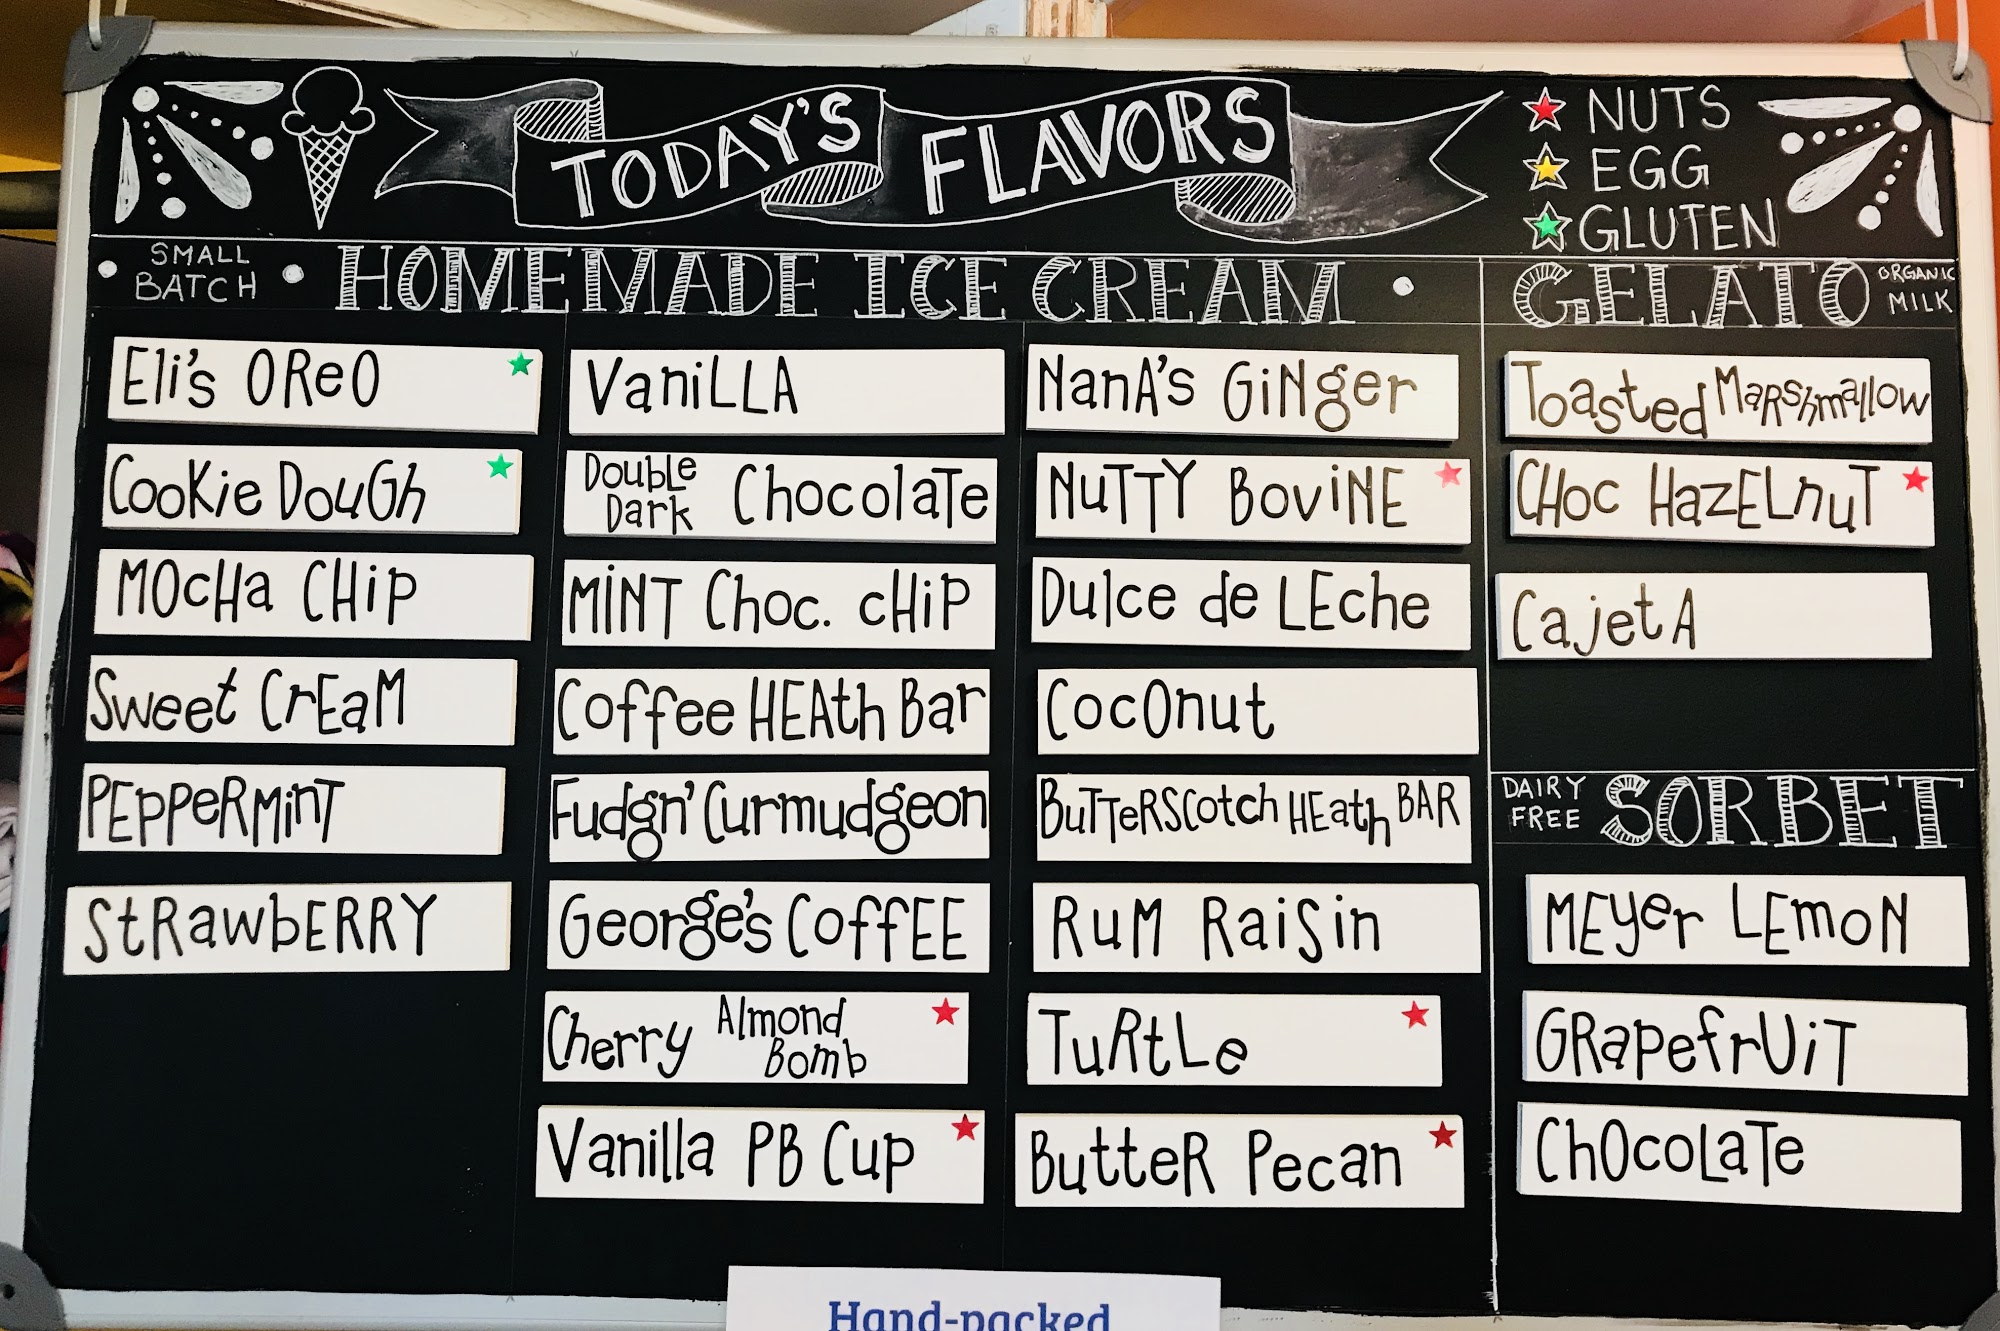 TODAY'S FLAVORS
NUTS
EGG
GLUTEN
SMALL
BATCH
HOMEMADE ICE CREAM
Eli's OReO
CooKie DouGh
MOcHa CHiP
Sweet CrEaM
PEPPeRMinT
StRawbERRY
VaniLLA
Double
Dark
ChocolaTe
MiNT Choc. cHiP
Coffee HEAth Bar
Fudgn' Curmudgeon
George's CoffEE
Cherry
Almond
Bomb
Vanilla PB Cup
NanA's GiNger
NuTTY BoviNE
Dulce de LEche
CocOnut
BuTTeRScotch HEath BAR
RuM RaiSin
TuRtLe
ButteR Pecan
GELATO
ORGANIC
MILK
Toasted MaRShmallow
CHoc HazELnuT
CajetA
DAIRY
FREE
SORBET
MEyer LEmoN
GRapefrUiT
ChOcoLaTe
Hand-packed